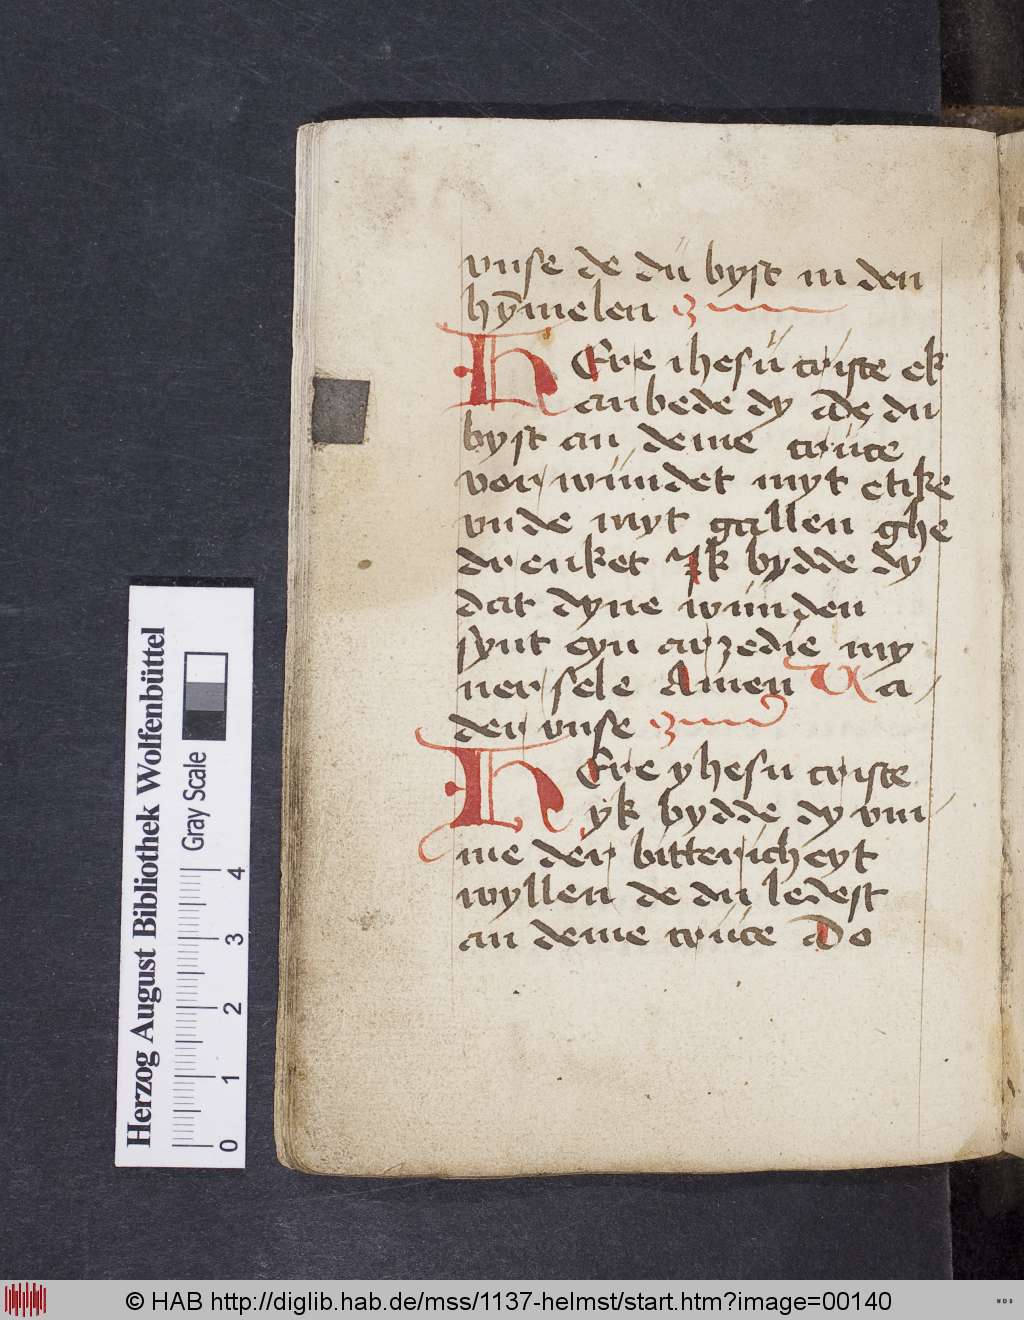 vnse de dü byst in den
hȳmelen
HEre ihesü criste ek
anbede dy Alze du
byst an deme crüce
vorwündet myt etike
vnde myt gallen ghe
drenket Ik bydde dy
dat dyne wünden
synt eyn arzedie my
ner sele Amen Va
der vnse
HEre yhesu criste
yk bydde dy vm
me der bittericheyt
wyllen de du ledest
an deme crüce Do
Herzog August Bibliothek Wolfenbüttel
Gray Scale
0 1 2 3 4
© HAB http://diglib.hab.de/mss/1137-helmst/start.htm?image=00140